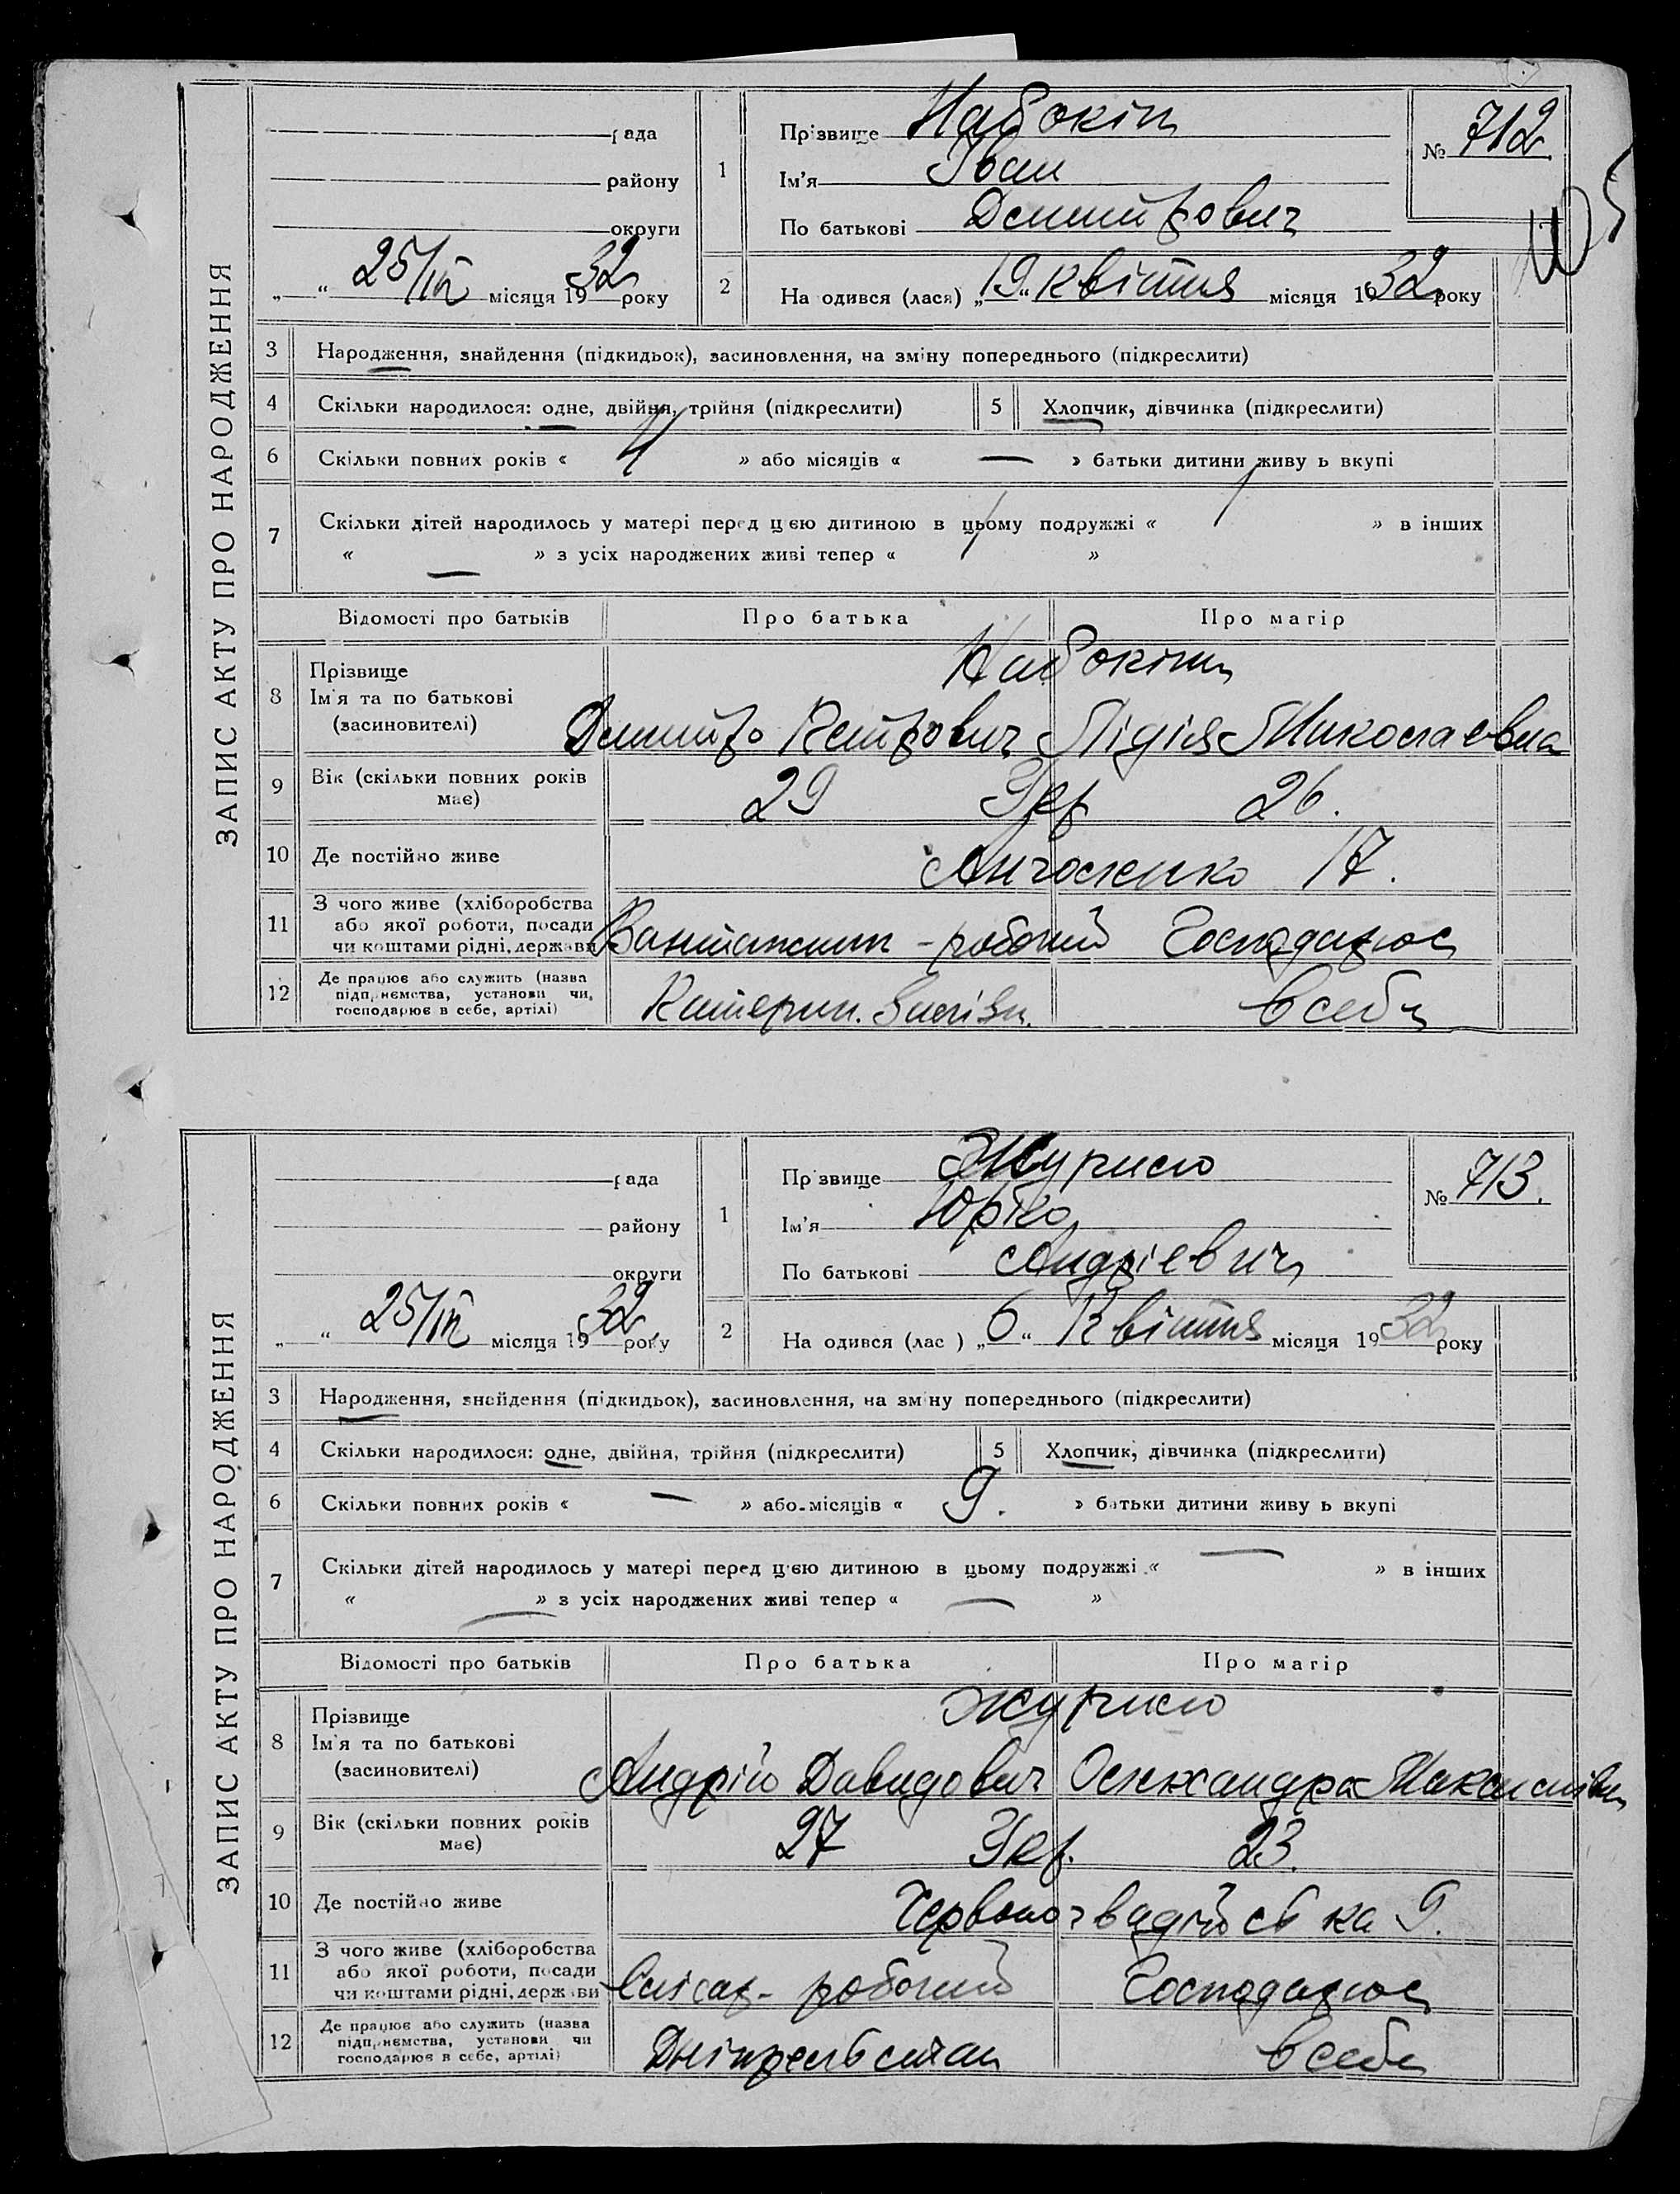 ЗАПИС АКТУ ПРО НАРОДЖЕННЯ
рада
району
округи
25/IV місяця 1932 року
1
Прізвище Набокін
Ім'я Іван
По батькові Дмитрович
№ 712
2
На одився (лася) „19“ квітня місяця 1932 року
3 Народження, знайдення (підкидьок), засиновлення, на зміну попереднього (підкреслити)
4 Скільки народилося: одне, двійня, трійня (підкреслити) 5 Хлопчик, дівчинка (підкреслити)
6 Скільки повних років « 4 » або місяців « — » батьки дитини живу ь вкупі
7 Скільки дітей народилось у матері перед цією дитиною в цьому подружжі « 1 » в інших
« — » з усіх народжених живі тепер « 1 »
Відомості про батьків Про батька Про матір
8 Прізвище Ім'я та по батькові (засновителі)
Набокіни
Дмитро Петрович Лідія Миколаєвна
9 Вік (скільки повних років має) 29 26.
10 Де постійно живе 17.
11 З чого живе (хліборобства або якої роботи, посади чи коштами рідні, держави Вантажник - робочий Господарює
12 Де працює або служить (назва підприємства, установи чи, господарює в себе, артілі) Катерин. в себе
ЗАПИС АКТУ ПРО НАРОДЖЕННЯ
рада
району
округи
25/IV місяця 1932 року
1
Пр звище
Ім'я Юрко
По батькові Андрієвич
№ 713.
2
На одився (лас ) „6“ Квітня місяця 1932 року
3 Народження, знайдення (підкидьок), засиновлення, на зміну попереднього (підкреслити)
4 Скільки народилося: одне, двійня, трійня (підкреслити) 5 Хлопчик, дівчинка (підкреслити)
6 Скільки повних років « — » або місяців « 9. » батьки дитини живу ь вкупі
7 Скільки дітей народилось у матері перед цією дитиною в цьому подружжі « — » в інших
« — » з усіх народжених живі тепер « — »
Відомості про батьків Про батька Про матір
8 Прізвище Ім'я та по батькові (засиновителі)
Андрій Давидович Олександра Максимівн
9 Вік (скільки повних років має) 27 23.
10 Де постійно живе Червоногвадійська 9.
11 З чого живе (хліборобства або якої роботи, посади чи коштами рідні, держави Слісар - робочий Господарює
12 Де працює або служить (назва підприємства, установи чи господарює в себе, артілі) в себе